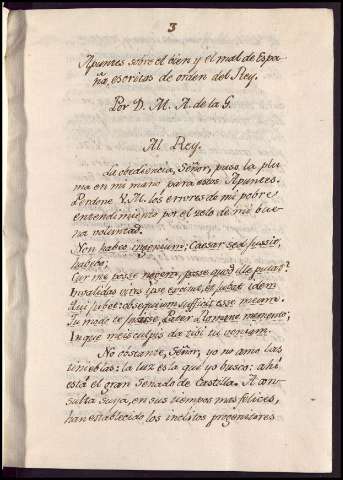 3
Apuntes sobre el bien y el mal de Espa-
ña, escritos de orden del Rey.
Por D. M. A. de la G.
Al Rey.
La obediencia, Señor, puso la plu-
ma en mi mano para estos Apuntes.
Perdone V. M. los errores de mi pobre
entendimiento por el zelo de mi bue-
na voluntad.
Non habeo ingenium; Caesar sed jussit,
habebo;
Cur me posse negem, posse quod ille putat?
Invalidas vires ipse excitat, et juvat idem
Qui jubet: obsequium sufficit esse meum.
Tu modo te Pater Romane memento;
Inque meis culpis da tibi tu veniam.
No obstante, Señor, yo no amo las
tinieblas: la luz es la que yo busco: ahí
está el gran Senado de Castilla. A con-
sulta suya, en sus tiempos mas felices,
han establecido los inclitos progenitores